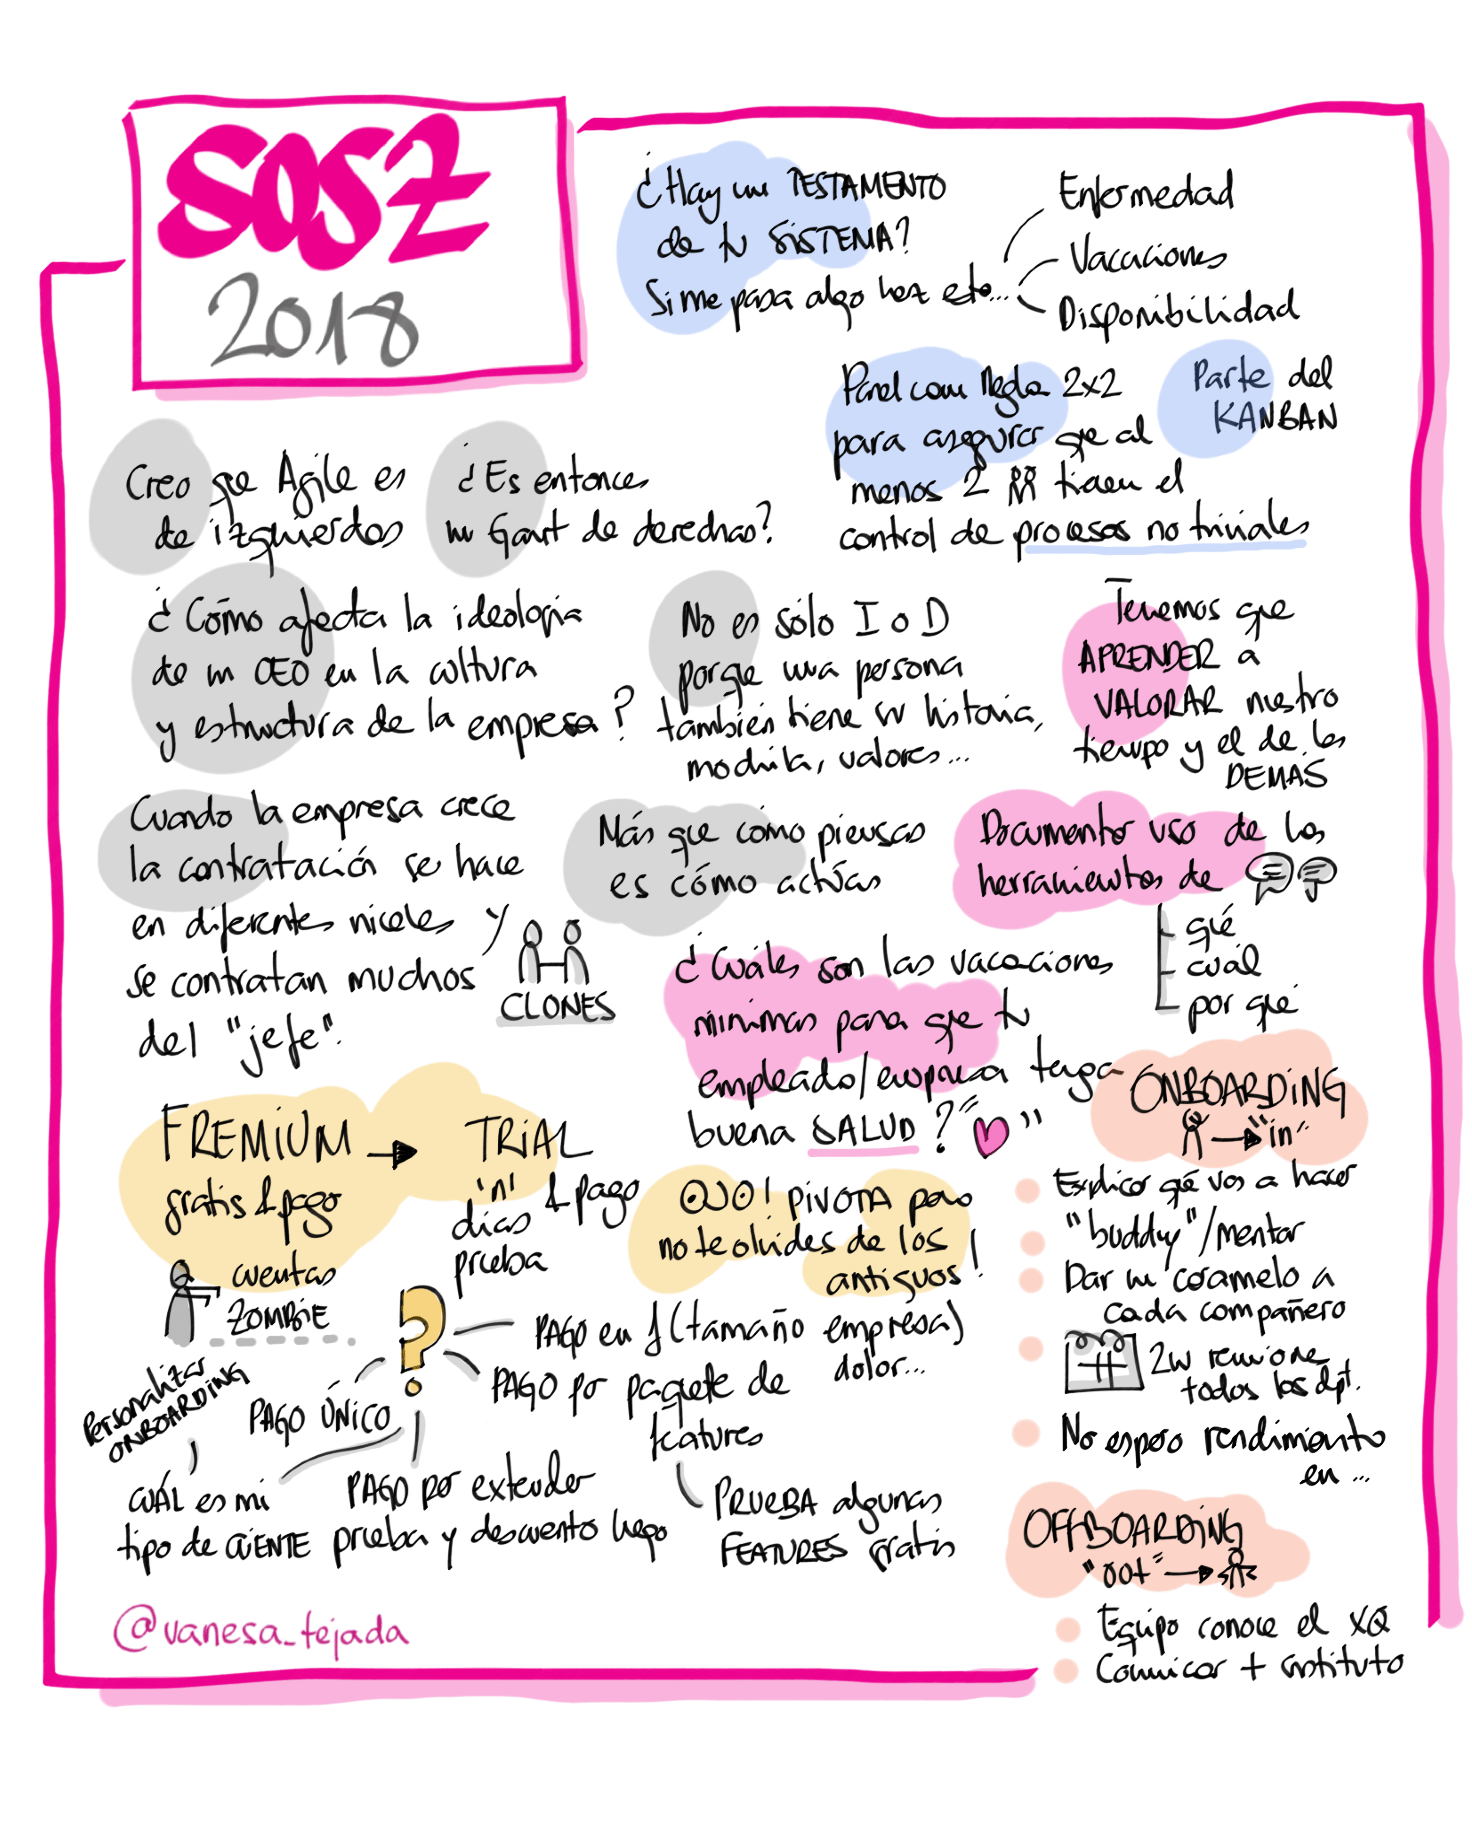 SOSZ
2018
¿Hay un TESTAMENTO
de tu SISTEMA?
Si me pasa algo haz esto...
Enfermedad
Vacaciones
Disponibilidad
Panel con regla 2x2
para asegurar que al
menos 2 tienen el
control de procesos no triviales
Parte del
KANBAN
Creo que Agile es
de izquierdas
¿Es entonces
un Gantt de derechas?
¿Cómo afecta la ideología
de un CEO en la cultura
y estructura de la empresa?
No es sólo I o D
porque una persona
también tiene su historia,
mochila, valores...
Tenemos que
APRENDER a
VALORAR nuestro
tiempo y el de los
DEMÁS
Cuando la empresa crece
la contratación se hace
en diferentes niveles y
se contratan muchos
del "jefe".
CLONES
Más que cómo piensas
es cómo actúas
Documentar uso de las
herramientas de
qué
cuál
por qué
¿Cuáles son las vacaciones
mínimas para que tu
empleado/empresa tenga
buena SALUD?
FREMIUM
gratis & pago
TRIAL
'n' & pago
días
prueba
cuentas
ZOMBIE
OJO! PIVOTA pero
no te olvides de los
antiguos!
Personalizar
ONBOARDING
CUÁL es mi
tipo de CLIENTE
PAGO ÚNICO
PAGO por extender
prueba y descuento luego
PAGO en f(tamaño empresa)
dolor...
PAGO por paquete de
features
PRUEBA algunas
FEATURES gratis
ONBOARDING
"in"
Explicar qué vas a hacer
"buddy"/mentor
Dar un caramelo a
cada compañero
2w reuniones
todos los dpt.
No espero rendimiento
en...
OFFBOARDING
"out"
Equipo conoce el XQ
Comunicar + sustituto
@vanesa_tejada